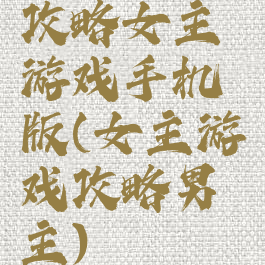 攻略女主
游戏手机
版(女主游
戏攻略男
主)